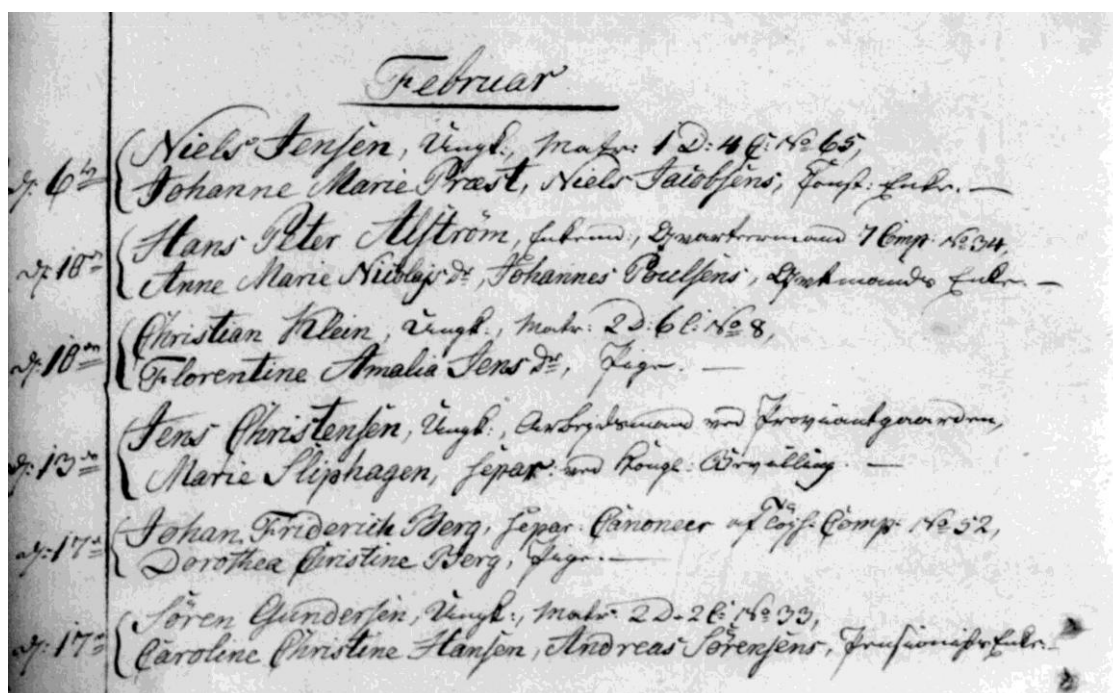 Februar
d: 6te Niels Jensen, Ungk:, Matr: 1 D: 4 C: No 65,
Johanne Marie Præst, Niels Jacobsens, Const: Enke. —
d: 10de Hans Peter Alström, Enkemd:, Qvartermand 7 Comp: No 34,
Anne Marie Nicolays dr, Johannes Poulsens, Enke. —
d: 10de Christian Klein, Ungk:, Matr: 2 D: 6 C: No 8,
Florentine Amalia Jens dr, Pige. —
d: 13de Jens Christensen, Ungk:, Arbeydsmand ved Proviantgaarden,
Marie Sliphagen, separ: ved Kongl: Bevilling. —
d: 17de Johan Friderich Berg, separ: Canoneer af Comp: No 52,
Dorothea Christine Berg, Pige. —
d: 17de Sören Gundersen, Ungk:, Matr: 2 D: 2 C: No 33,
Caroline Christine Hansen, Andreas Sörensens, Enke. —